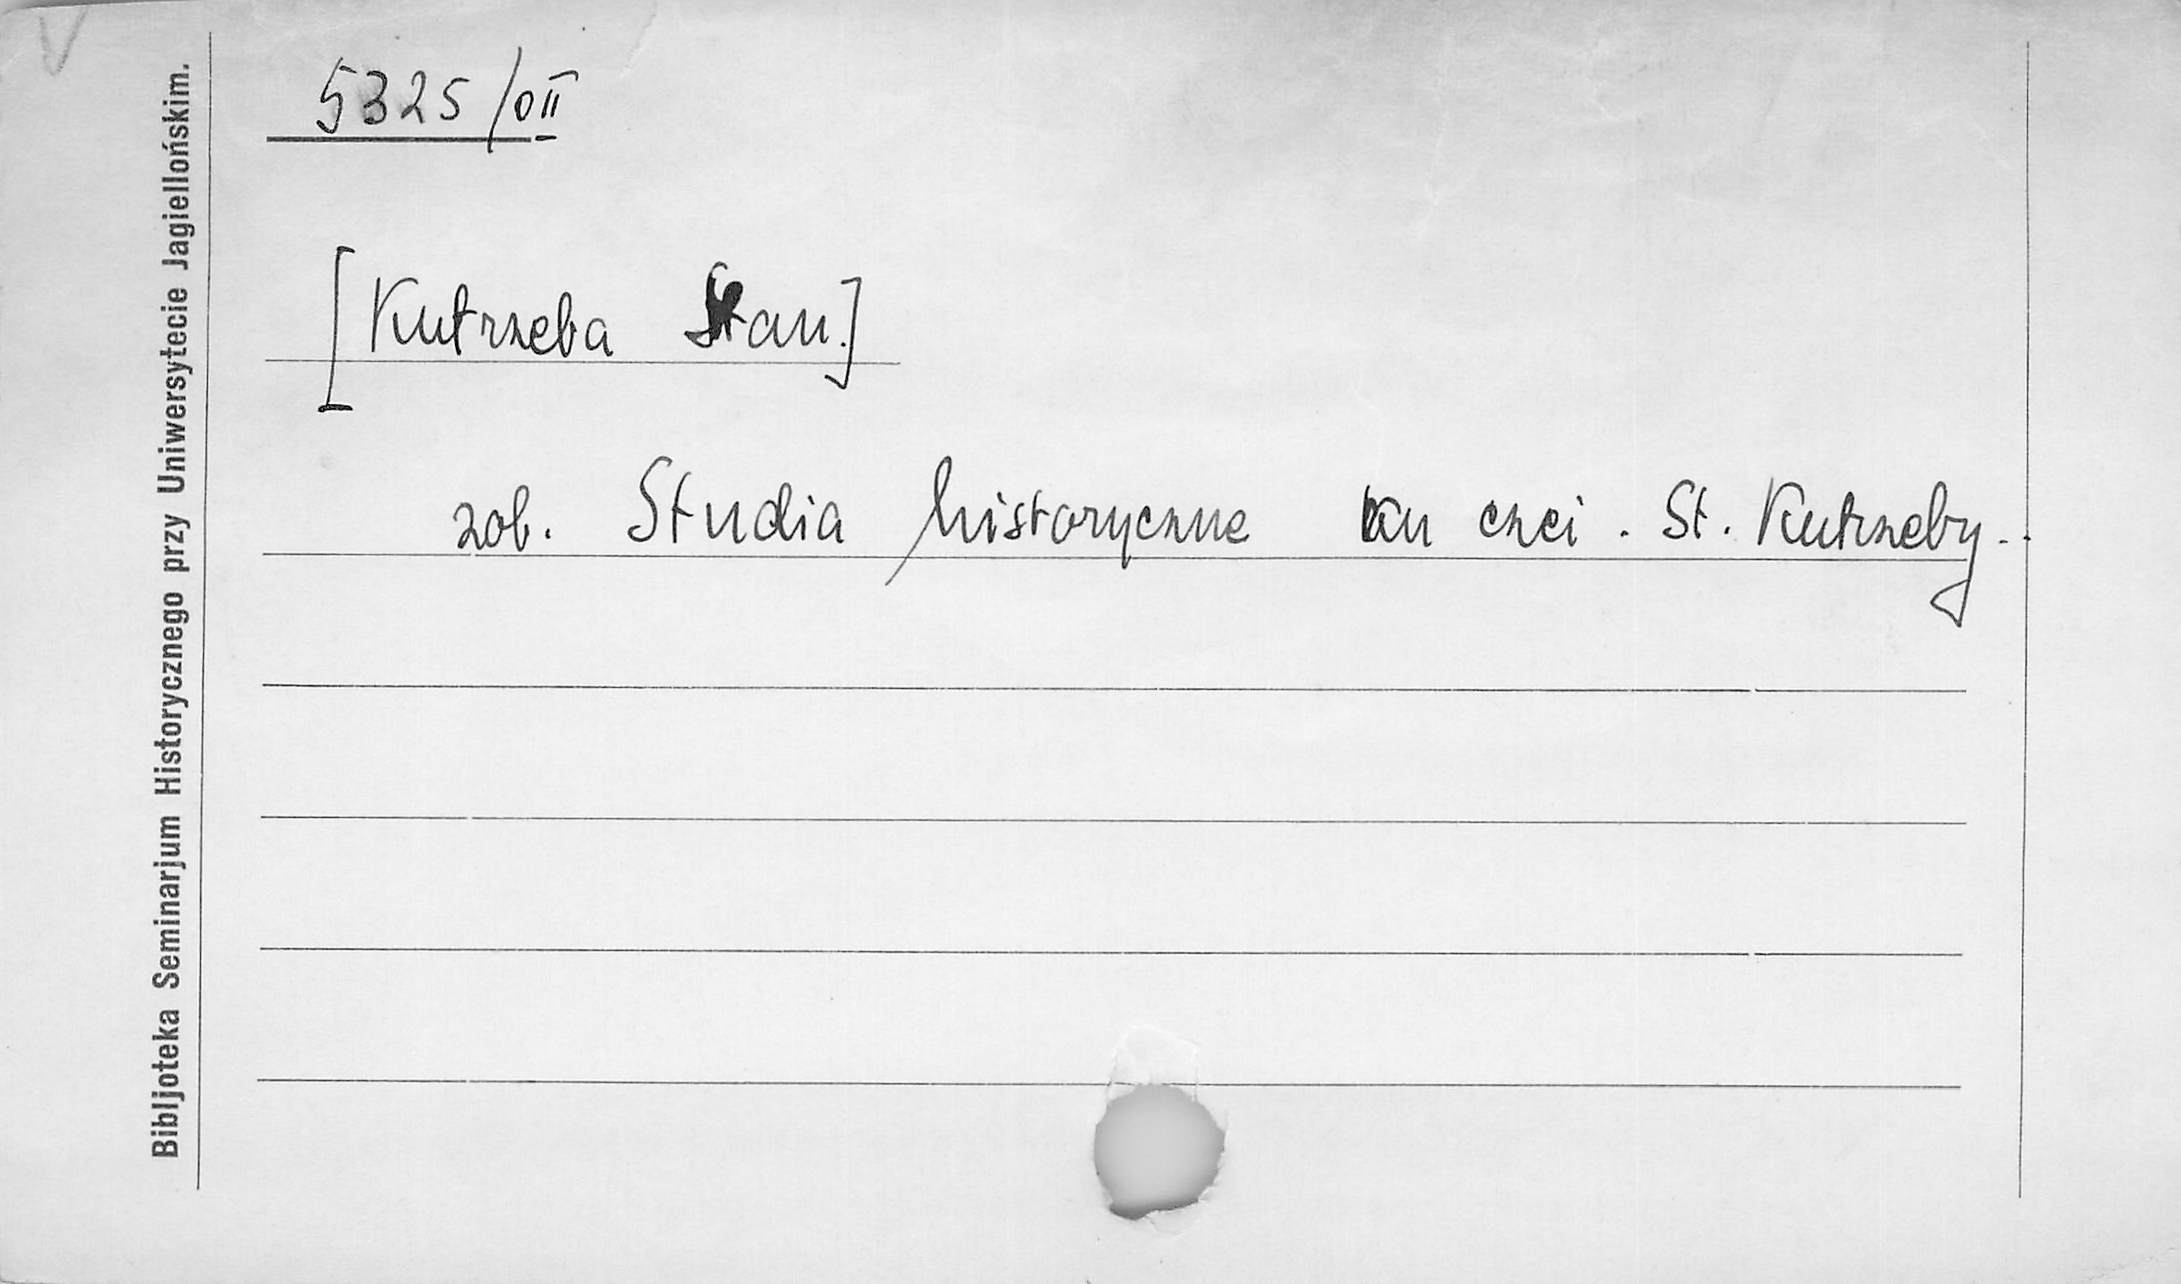 Bibljoteka Seminarjum Historycznego przy Uniwersytecie Jagiellońskim.
5325/o II
[Kutrzeba Stan.]
zob. Studia historyczne ku czci . St. Kutrzeby..